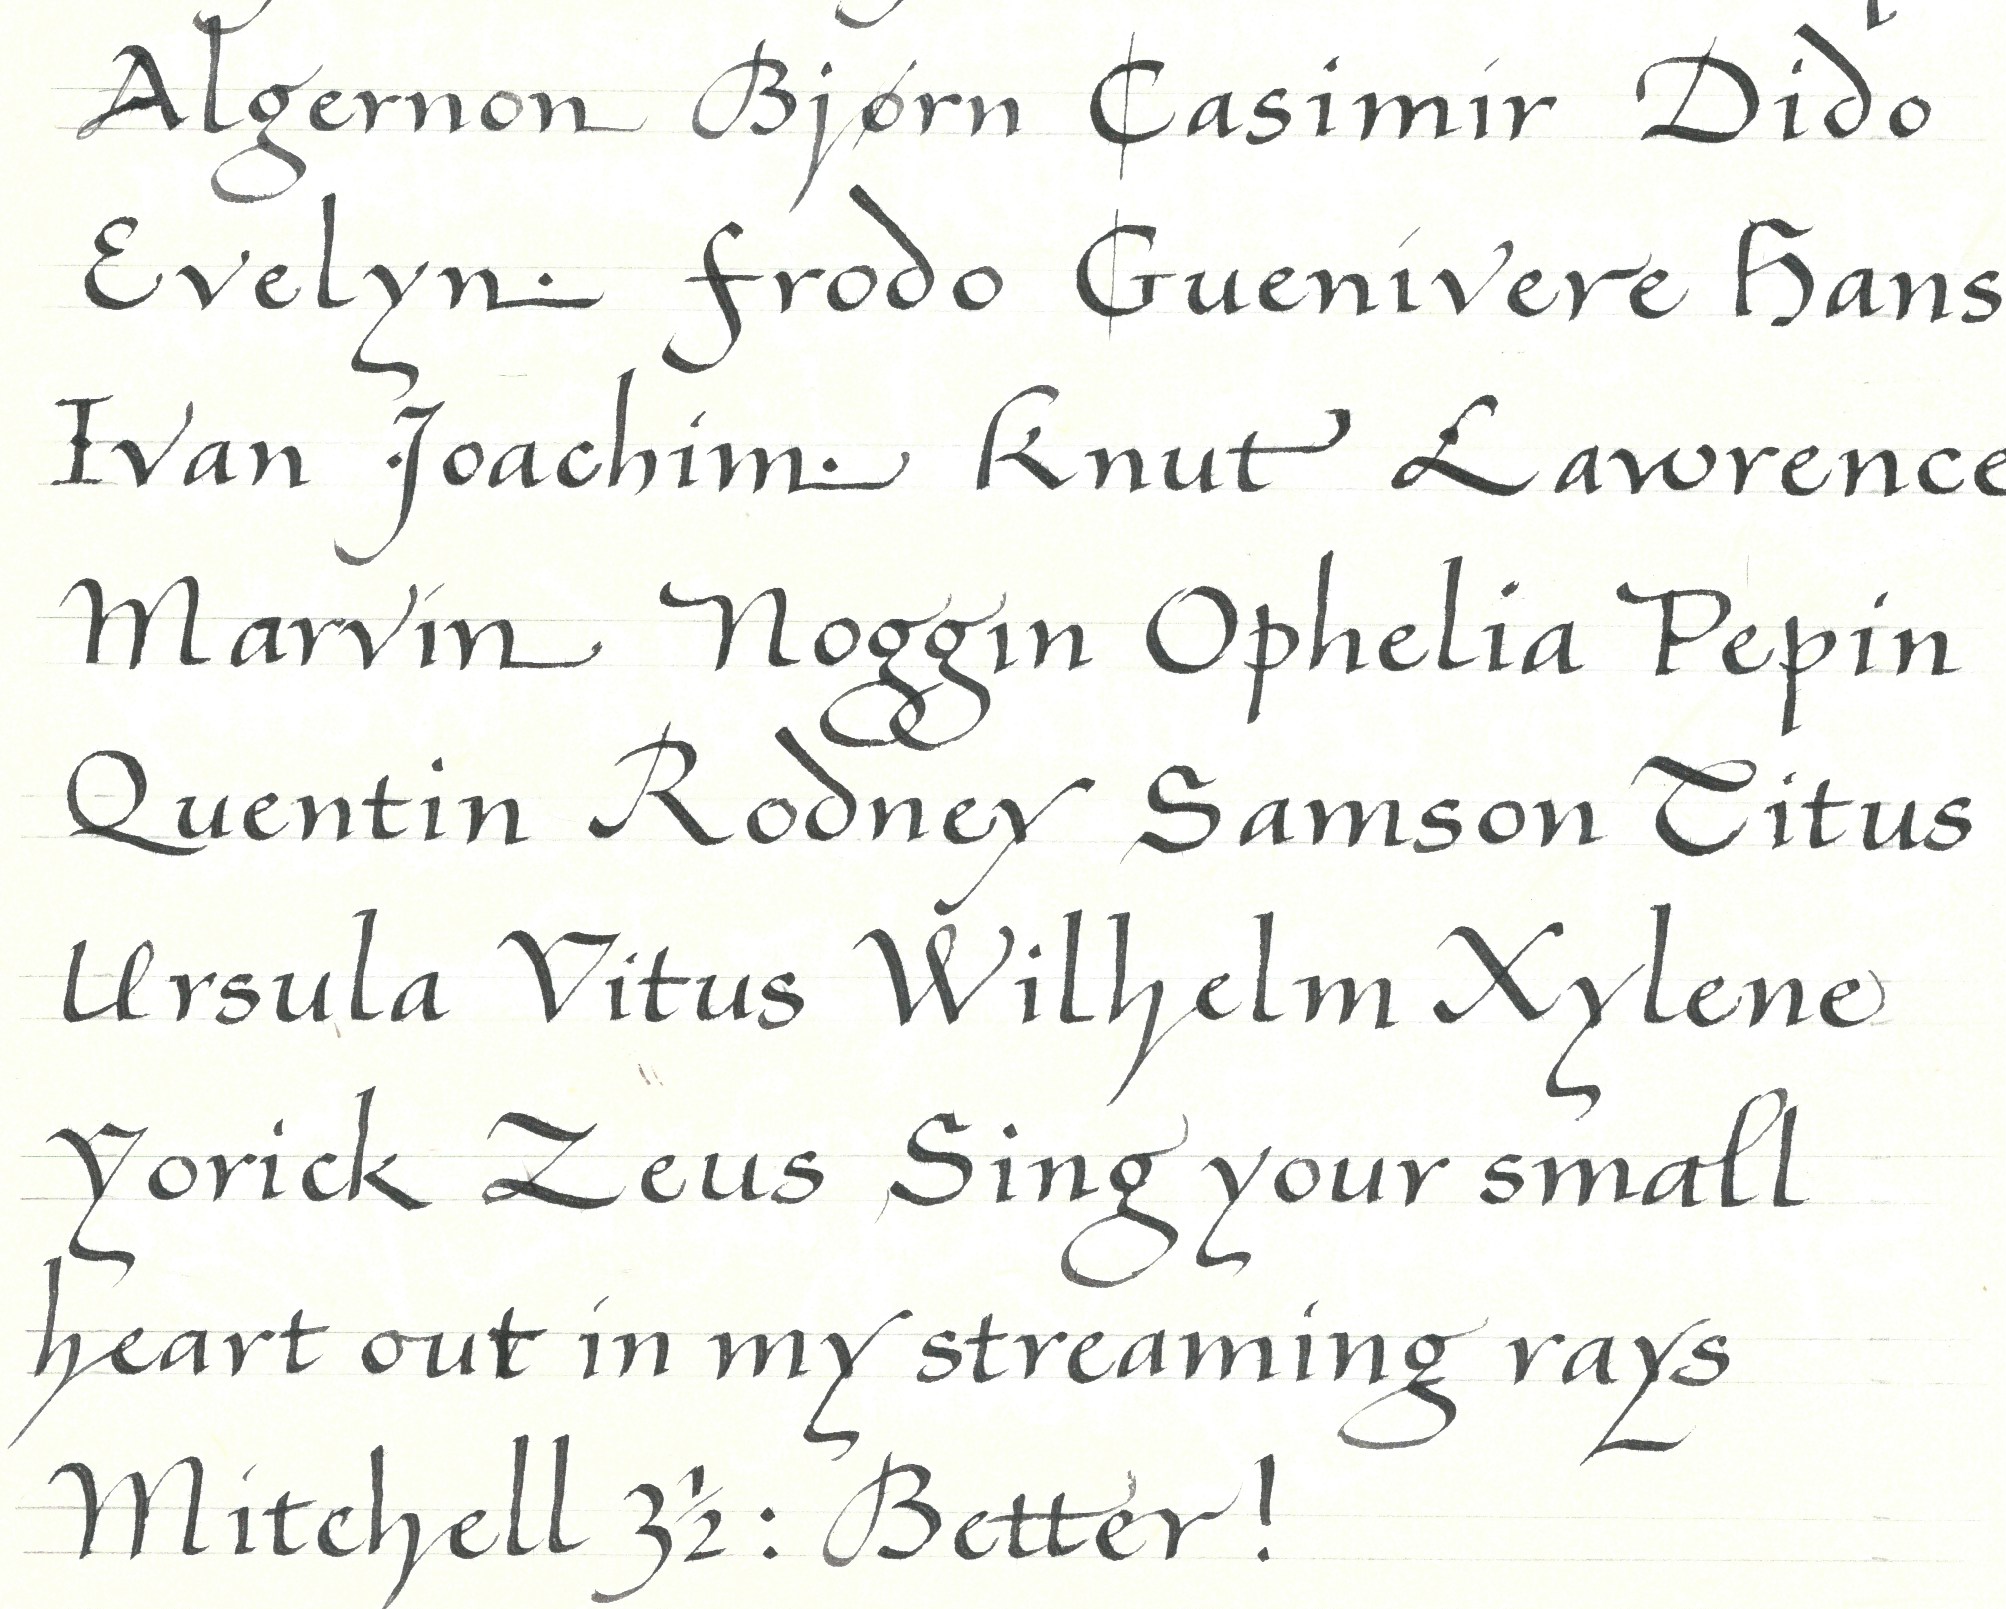 Algernon Bjørn Casimir Dido
Evelyn. Frodo Guenivere Hans
Ivan Joachim. Knut Lawrence
Marvin Noggin Ophelia Pepin
Quentin Rodney Samson Titus
Ursula Vitus Wilhelm Xylene
Yorick Zeus Sing your small
heart out in my streaming rays
Mitchell 3½: Better!